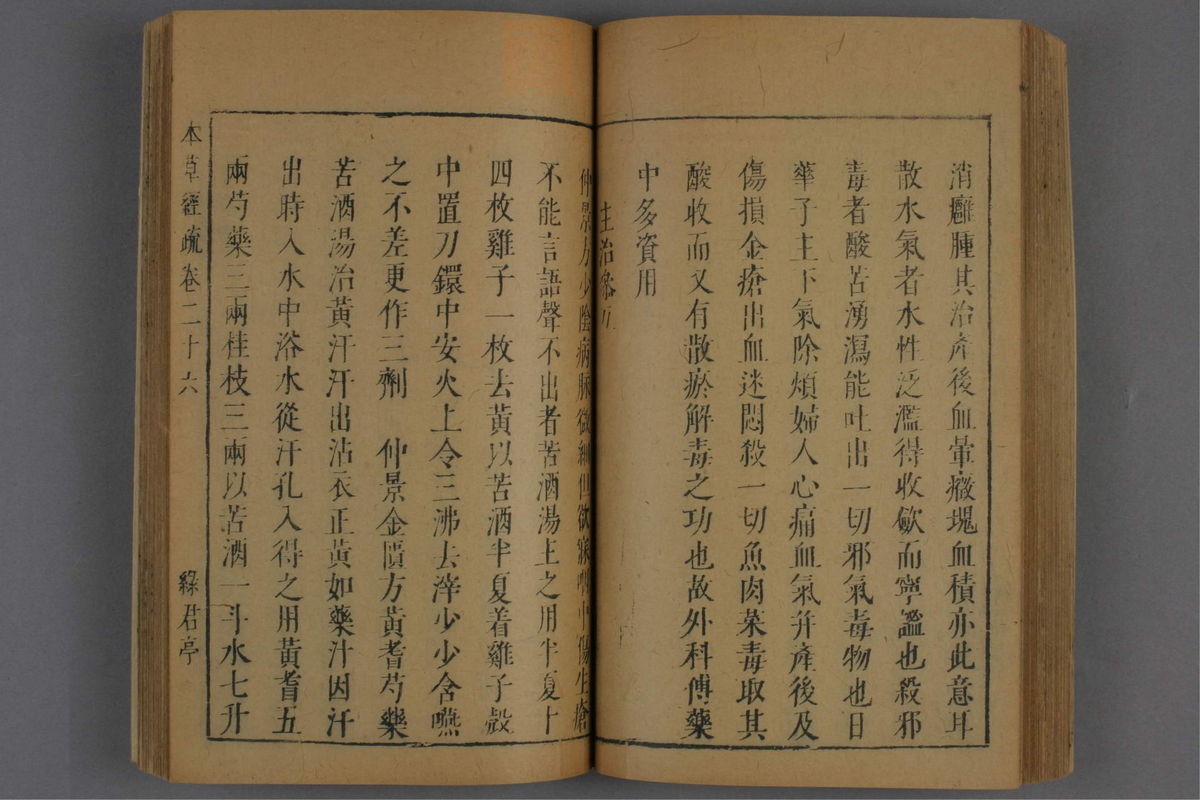 消癰腫其治產後血暈癥塊血積亦此意耳
散水氣者水性泛濫得收歛而寧謐也殺邪
毒者酸苦湧瀉能吐出一切邪氣毒物也日
華子主下氣除煩婦人心痛血氣并產後及
傷損金瘡出血迷悶殺一切魚肉菜毒取其
酸收而又有散瘀解毒之功也故外科傅藥
中多資用
主治參互
仲景方少陰病脉微細但欲寐咽中傷生瘡
不能言語聲不出者苦酒湯主之用半夏十
四枚雞子一枚去黃以苦酒半夏着雞子殻
中置刀鐶中安火上令三沸去滓少少含嚥
之不差更作三劑　仲景金匱方黃耆芍藥
苦酒湯治黃汗汗出沾衣正黃如藥汁因汗
出時入水中浴水從汗孔入得之用黃耆五
兩芍藥三兩桂枝三兩以苦酒一斗水七升
本草經疏卷二十六
綠君亭